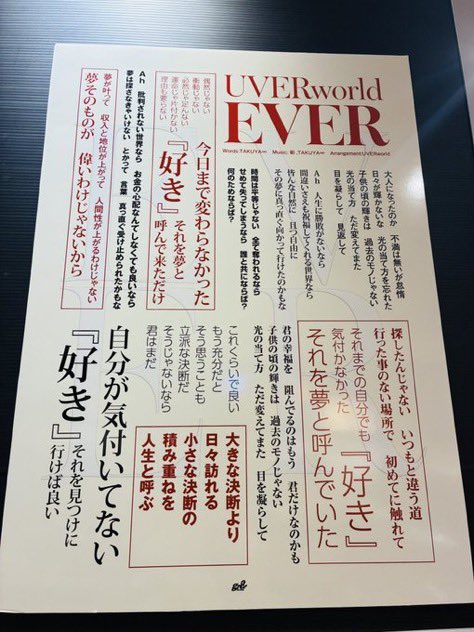 UVERworld
EVER
Words:TAKUYA∞ Music:彰,TAKUYA∞ Arrangement:UVERworld
大人になったのか 不満は無いが怠惰
日々が輝かないな 光の当て方を忘れた
子供の頃の輝きは 過去のモノじゃない
光の当て方 ただ変えてまた
目を凝らして 見返して
Ah 人生に勝敗がないなら
間違いさえも祝福してくれる世界なら
皆んな自然に 且つ自由に
その夢に真っ直ぐ向かって行けたのかもな
時間は平等じゃない 全て奪われるなら
せめて失ってしまうなら 誰と共にならば?
何のためならば?
偶然じゃない
衝動じゃない
必然じゃ足んない
運命じゃ片付かない
理由も要らない
今日まで変わらなかった
『好き』それを夢と
呼んで来ただけ
Ah 批判されない世界なら お金の心配なんてしなくても良いなら
夢は探さなきゃいけない とかって 言葉 真っ直ぐ受け止められたかもな
夢が叶って 収入と地位が上がって 人間性が上がるわけじゃない
夢そのものが 偉いわけじゃないから
探したんじゃない いつもと違う道
行った事のない場所で 初めてに触れて
それまでの自分でも
気付かなかった『好き』
それを夢と呼んでいた
君の幸福を 阻んでるのはもう 君だけなのかも
子供の頃の輝きは 過去のモノじゃない
光の当て方 ただ変えてまた 目を凝らして
これくらいで良い
もう充分だと
そう思うことも
立派な決断だ
そうじゃないなら
君はまだ
大きな決断より
日々訪れる
小さな決断の
積み重ねを
人生と呼ぶ
自分が気付いてない
『好き』それを見つけに
行けば良い